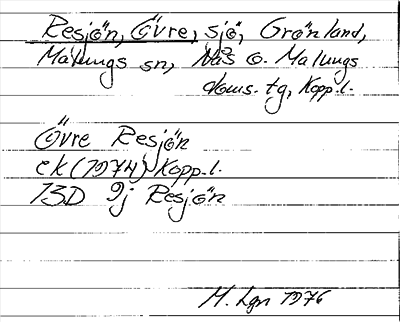 Resjön, Övre, sjö, Grönland,
Malungs sn, Nås o. Malungs
doms. tg, Kopp. l.
Övre Resjön
ek (1974) Kopp. l.
13D 9j Resjön
M. Lgn 1976